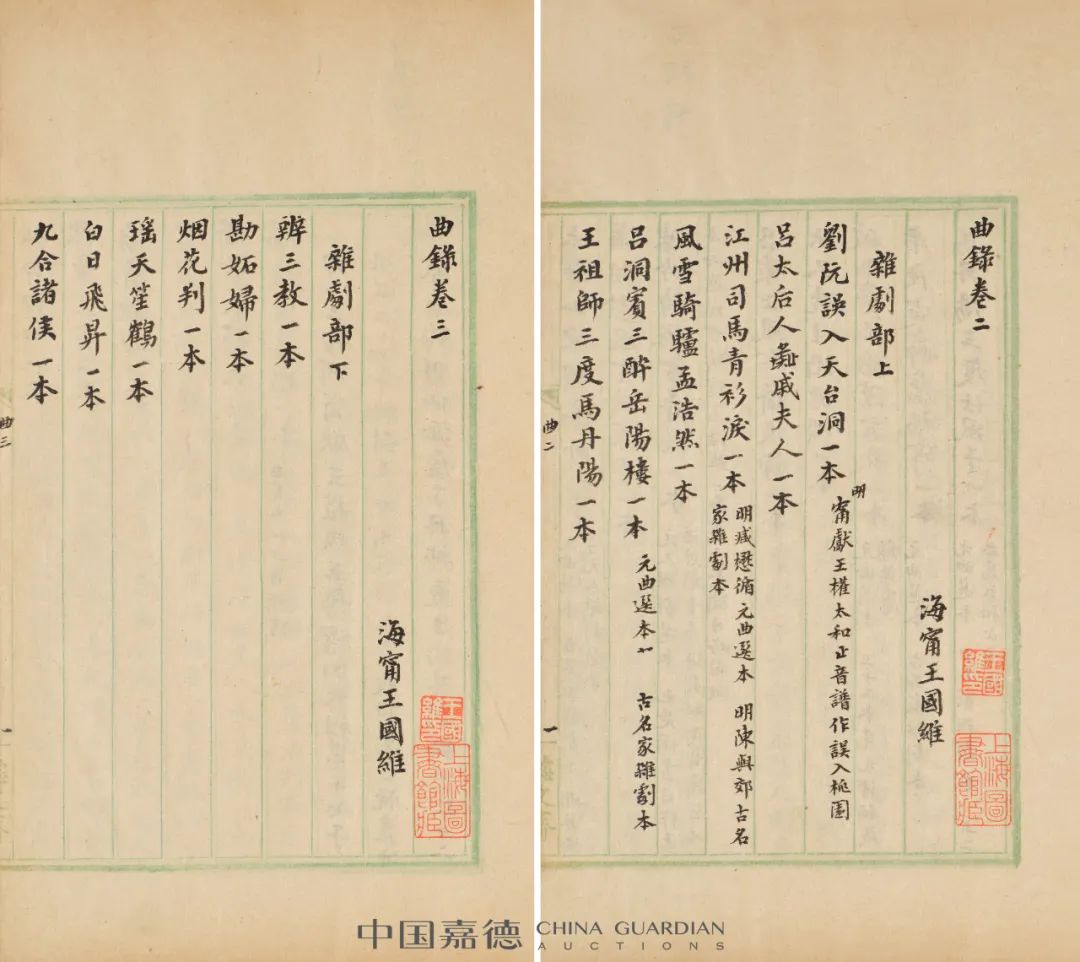 曲錄卷二
海甯王國維
雜劇部上
劉阮誤入天台洞一本 明甯獻王權太和正音譜作誤入桃園
呂太后人彘戚夫人一本
江州司馬青衫淚一本 明臧懋循元曲選本 明陳與郊古名家雜劇本
風雪騎驢孟浩然一本
呂洞賓三醉岳陽樓一本 元曲選本 古名家雜劇本
王祖師三度馬丹陽一本
曲二
一
王國維印
上海圖書館藏
曲錄卷三
海甯王國維
雜劇部下
辨三教一本
勘妬婦一本
烟花判一本
瑶天笙鶴一本
白日飛昇一本
九合諸侯一本
曲三
一
王國維印
上海圖書館藏
中国嘉德 CHINA GUARDIAN
AUCTIONS